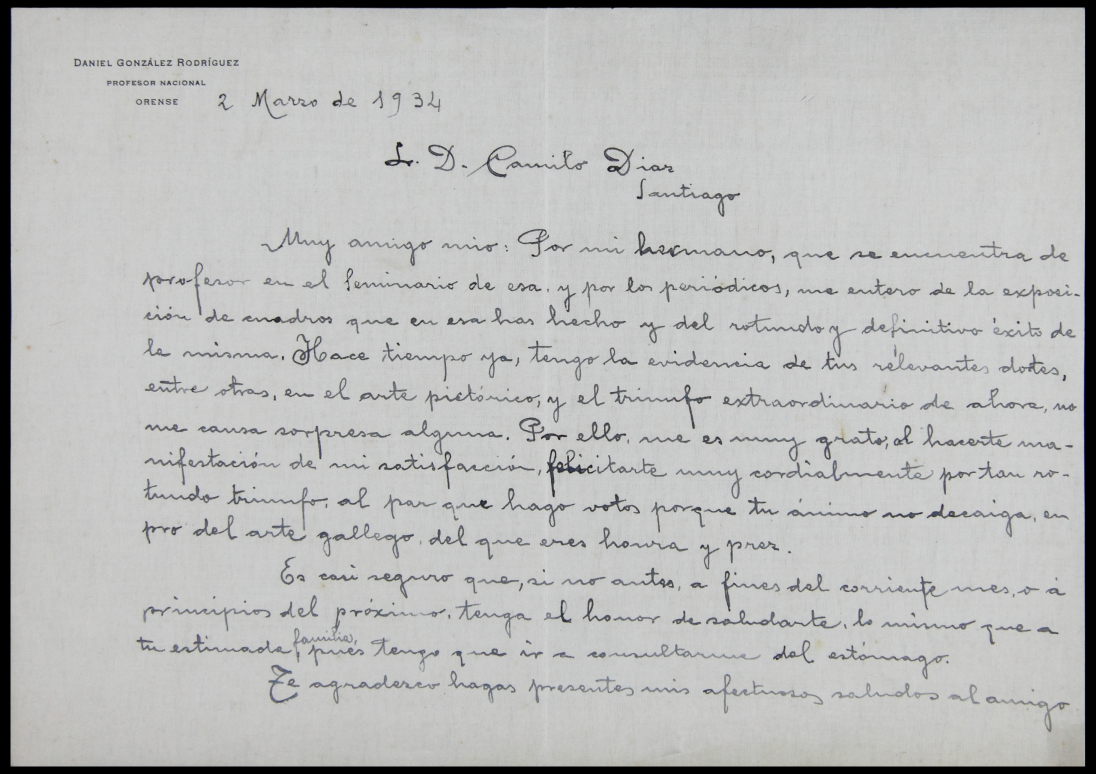 DANIEL GONZÁLEZ RODRÍGUEZ
PROFESOR NACIONAL
ORENSE
2 Marzo de 1934
Sr. D. Camilo Diaz
Santiago
Muy amigo mio: Por mi hermano, que se encuentra de
profesor en el Seminario de esa, y por los periódicos, me entero de la exposi-
ción de cuadros que en esa has hecho y del rotundo y definitivo éxito de
la misma. Hace tiempo ya, tengo la evidencia de tus relevantes dotes,
entre otras, en el arte pictórico, y el triunfo extraordinario de ahora, no
me causa sorpresa alguna. Por ello, me es muy grato, al hacerte ma-
nifestación de mi satisfacción, felicitarte muy cordialmente por tan ro-
tundo triunfo, al par que hago votos porque tu ánimo no decaiga, en
pro del arte gallego, del que eres honra y prez.
Es casi seguro que, si no antes, a fines del corriente mes, o á
principios del próximo, tenga el honor de saludarte, lo mismo que a
tu estimada familia, pues tengo que ir a consultarme del estómago.
Te agradezco hagas presentes mis afectuosos saludos al amigo